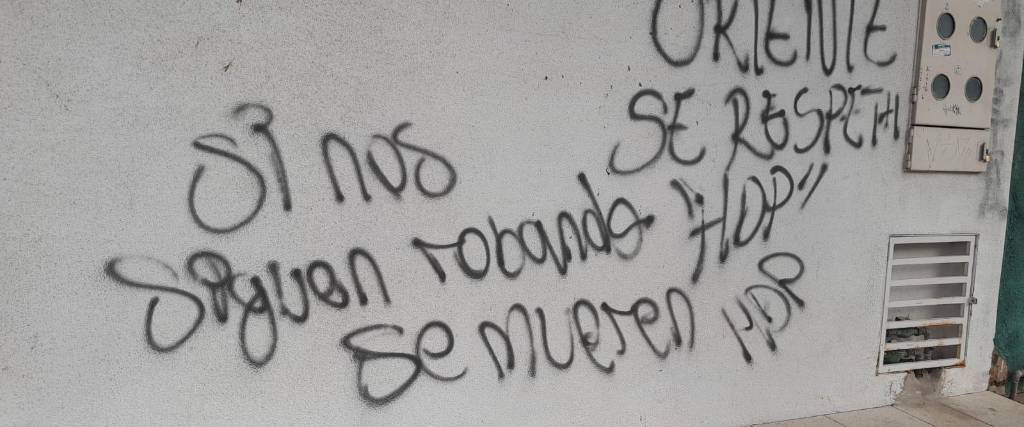 ORIENTE
SE RESPETA
"HDP"
Si nos
siguen robando
se mueren HDP